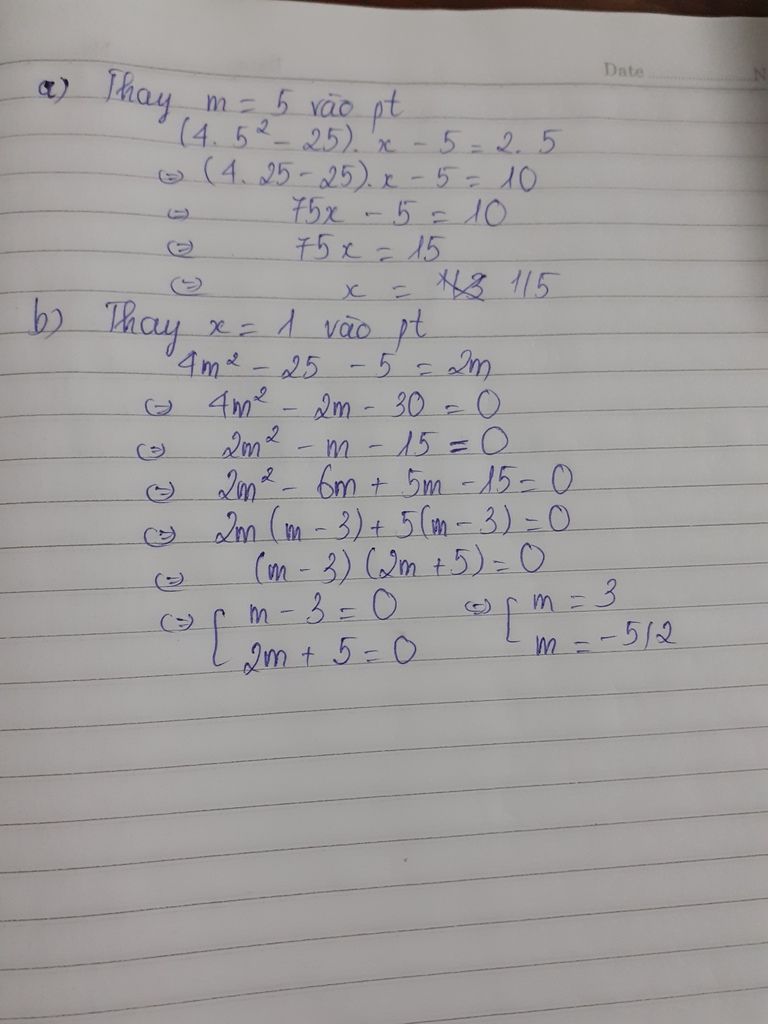 Date
N
a) Thay m = 5 vào pt
(4. 5² - 25). x - 5 = 2. 5
⇔ (4. 25 - 25). x - 5 = 10
⇔ 75x - 5 = 10
⇔ 75x = 15
⇔ x = 1/5
b) Thay x = 1 vào pt
4m² - 25 - 5 = 2m
⇔ 4m² - 2m - 30 = 0
⇔ 2m² - m - 15 = 0
⇔ 2m² - 6m + 5m - 15 = 0
⇔ 2m (m - 3) + 5(m - 3) = 0
⇔ (m - 3) (2m + 5) = 0
⇔ [ m - 3 = 0 ⇔ [ m = 3
2m + 5 = 0 m = -5/2